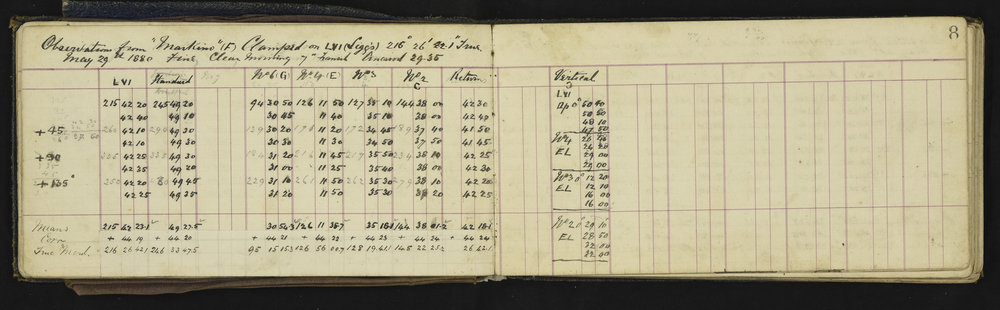 8
Observations from "Markino" (F) Clamped on LVI (Legg's) 216° 26' 22.1" True
May 29th 1880 Fine, Clear morning 7" Aneroid 29.35
LVI Standard No 6 (G) No 4 (E) No 3 No 2 C Return Vertical
215 42 20 245 49 20 94 30 50 126 11 50 127 35 10 144 38 00 42 30
42 40 49 10 30 45 11 40 35 10 38 00 42 40
+ 45 260 42 10 290 49 30 139 30 20 11 50 172 34 45 189 37 40 41 50
42 10 49 30 30 30 11 30 34 50 37 50 41 45
+ 90 305 42 25 335 49 30 184 31 20 11 45 217 35 50 234 38 10 42 25
42 35 49 20 31 00 11 25 35 40 38 00 42 30
+ 135° 350 42 20 80 49 45 229 31 10 261 11 50 262 35 30 279 38 10 42 20
42 25 49 35 31 20 11 50 35 30 38 20 42 25
Means 215 42 23.1 49 27.5 30 54.3 126 11 38.7 35 18.1 144 38 01.2 42 18.1
Corr + 44 19 + 44 20 + 44 21 + 44 22 + 44 23 + 44 24 + 44 24
True Merid. 216 26 42.1 246 33 47.5 95 15 15.3 126 56 00.7 128 19 41.1 145 22 25.2 26 42.1
LVI
Dp 0° 50 40
50 50
48 10
47 50
No 4 26 10
EL 24 20
29 00
29 00
No 3 0° 12 20
EL 12 10
16 00
16 00
No 2 1° 29 10
EL 28 50
32 00
32 00